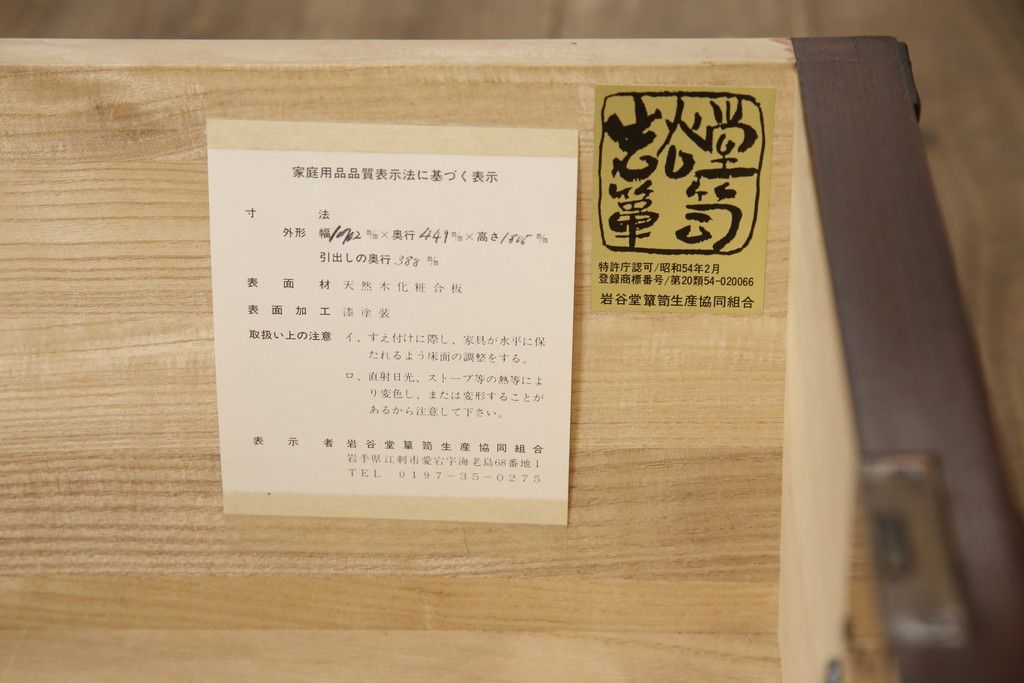 家庭用品品質表示法に基づく表示
寸 法
外形 幅 ㎜×奥行449㎜×高さ ㎜
引出しの奥行 388 ㎜
表面材 天然木化粧合板
表面加工 漆塗装
取扱い上の注意 イ、すえ付けに際し、家具が水平に保
たれるよう床面の調整をする。
ロ、直射日光、ストーブ等の熱等によ
り変色し、または変形することが
あるから注意して下さい。
表示者 岩谷堂簞笥生産協同組合
岩手県江刺市愛宕字海老島68番地1
TEL 0197-35-0275
岩谷堂
簞笥
特許庁認可/昭和54年2月
登録商標番号/第20類54-020066
岩谷堂簞笥生産協同組合